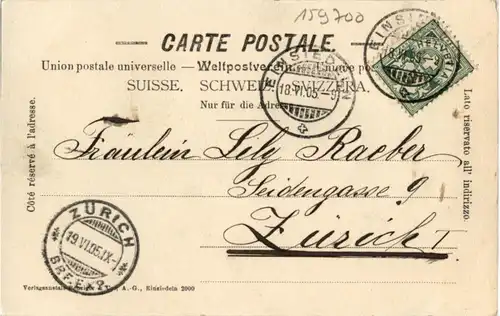 159700
CARTE POSTALE.
Union postale universelle — Weltpostverein
SUISSE. SCHWEIZ. SVIZZERA.
Nur für die
EINSIEDELN
18.VI.05.-9
EINSI
HELVETIA
Côté réservé à l'adresse.
Lato riservato all' indirizzo.
Fräulein Lily Raeber
Seidengasse 9
Zürich I
ZÜRICH
19.VI.05.IX-
BRF.EXP.
Verlagsanstalt A.-G., Einsiedeln 2000